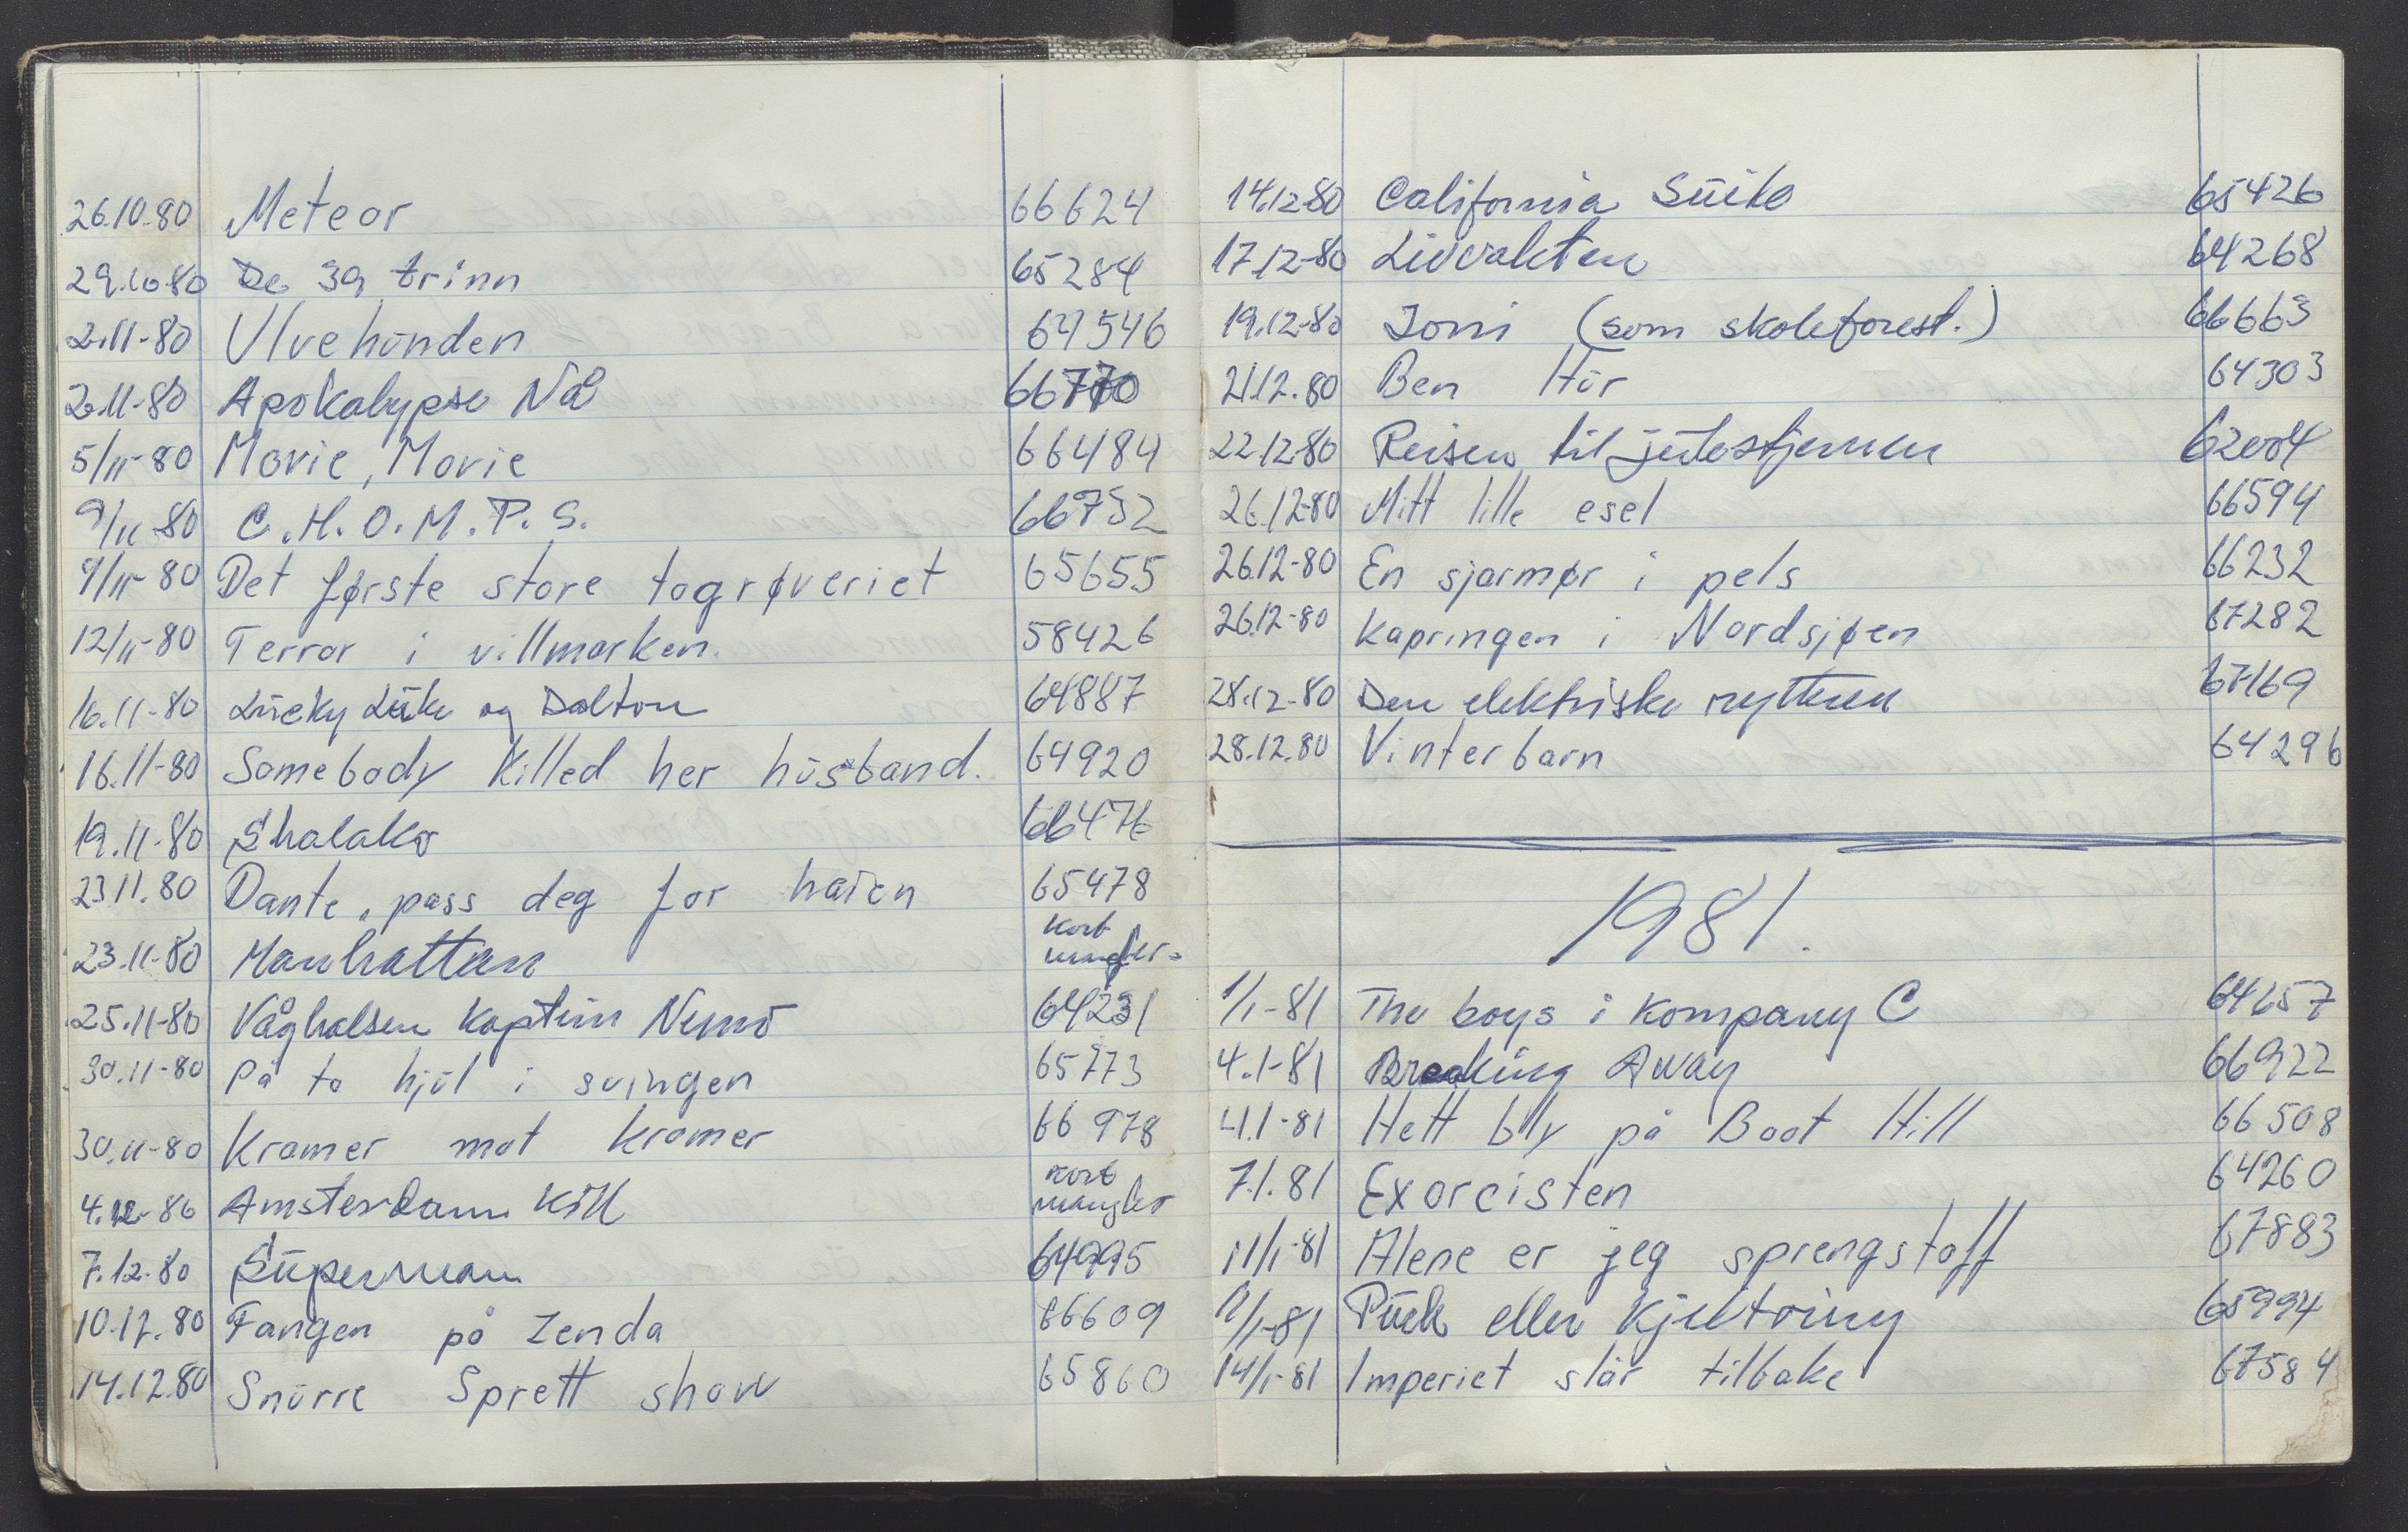 26.10.80 Meteor 66624
29.10.80 De 39 trinn 65284
2.11-80 Ulvehunden 64546
2.11-80 Apokalypse Nå 66770
5/11-80 Movie, Movie 66484
9/11-80 C.H.O.M.P.S. 66752
9/11-80 Det første store togrøveriet 65655
12/11-80 Terror i villmarken. 58426
16.11-80 Lucky Luke og Dalton 64887
16.11-80 Somebody Killed her husband. 64920
19.11-80 Shalako 66476
23.11.80 Dante, pass deg for haien 65478
23.11-80 Manhattan kort mangler
25.11-80 Våghalsen kaptein Nemo 64231
30.11-80 På to hjul i svingen 65773
30.11-80 Kramer mot kramer 66978
4.12-80 Amsterdam Kill kort mangler
7.12.80 Superman 64995
10.12.80 Fangen på Zenda 66609
14.12.80 Snurre Sprett show 65860
14.12-80 California Suite 65426
17.12-80 Livvakten 64268
19.12-80 Joni (som skoleforest.) 66663
21.12.80 Ben Hur 64303
22.12-80 Reisen til julestjernen 62004
26.12-80 Mitt lille esel 66594
26.12-80 En sjarmør i pels 66232
26.12-80 Kapringen i Nordsjøen 67282
28.12-80 Den elektriske rytteren 67169
28.12.80 Vinterbarn 64296
1981.
1/1-81 The boys i kompany C 64657
4.1-81 Breaking Away 66922
4.1-81 Hett bly på Boot Hill 66508
7.1.81 Exorcisten 64260
11/1-81 Alene er jeg sprengstoff 67883
11/1-81 Purk eller kjeltring 65994
14/1-81 Imperiet slår tilbake 67584